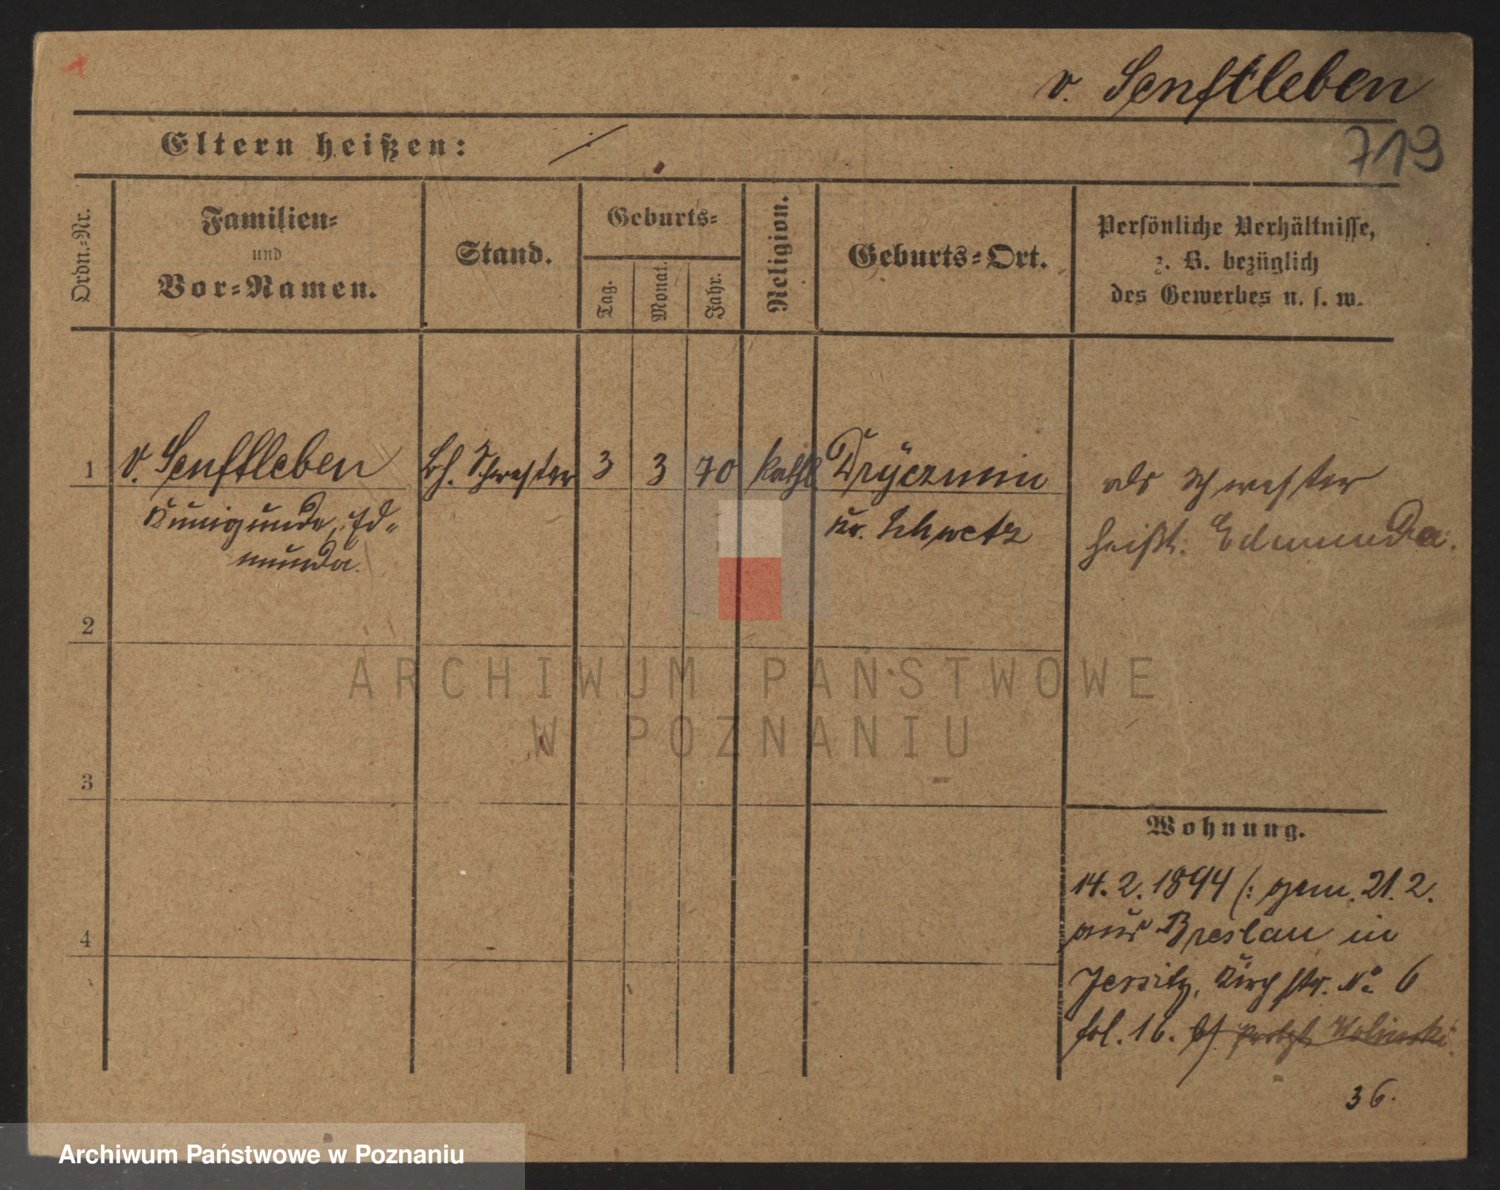 1
v. Senftleben
719
Eltern heißen:
Ordn.=Nr.
Familien=
und
Vor=Namen.
Stand.
Geburts=
Tag.
Monat.
Jahr.
Religion.
Geburts=Ort.
Persönliche Verhältnisse,
z. B. bezüglich
des Gewerbes u. s. w.
1 v. Senftleben Schwester 3 3 70 kathl.
Kunigunde, Ed=
munda.
Kr. Schwetz
als Schwester
heißt. Edmunda.
2
3
4
Wohnung.
14.2.1894 (: gem. 21.2.
aus Breslau in
Jersitz, Kirchstr. No 6
fol. 16.
36.
ARCHIWUM PAŃSTWOWE
W POZNANIU
Archiwum Państwowe w Poznaniu